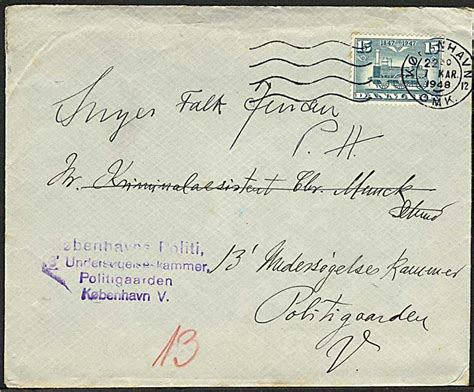 15 1847-1947 15
DANMARK
KØBENHAVN
22
KAR.
1948
OMK.
12
Inger Falk Jensen
P. H.
Hr. Kriminalassistent Chr. Munck
Københavns Politi,
Undersøgelseskammer,
Politigaarden
København V.
13' Undersøgelseskammer
Politigaarden
V.
13